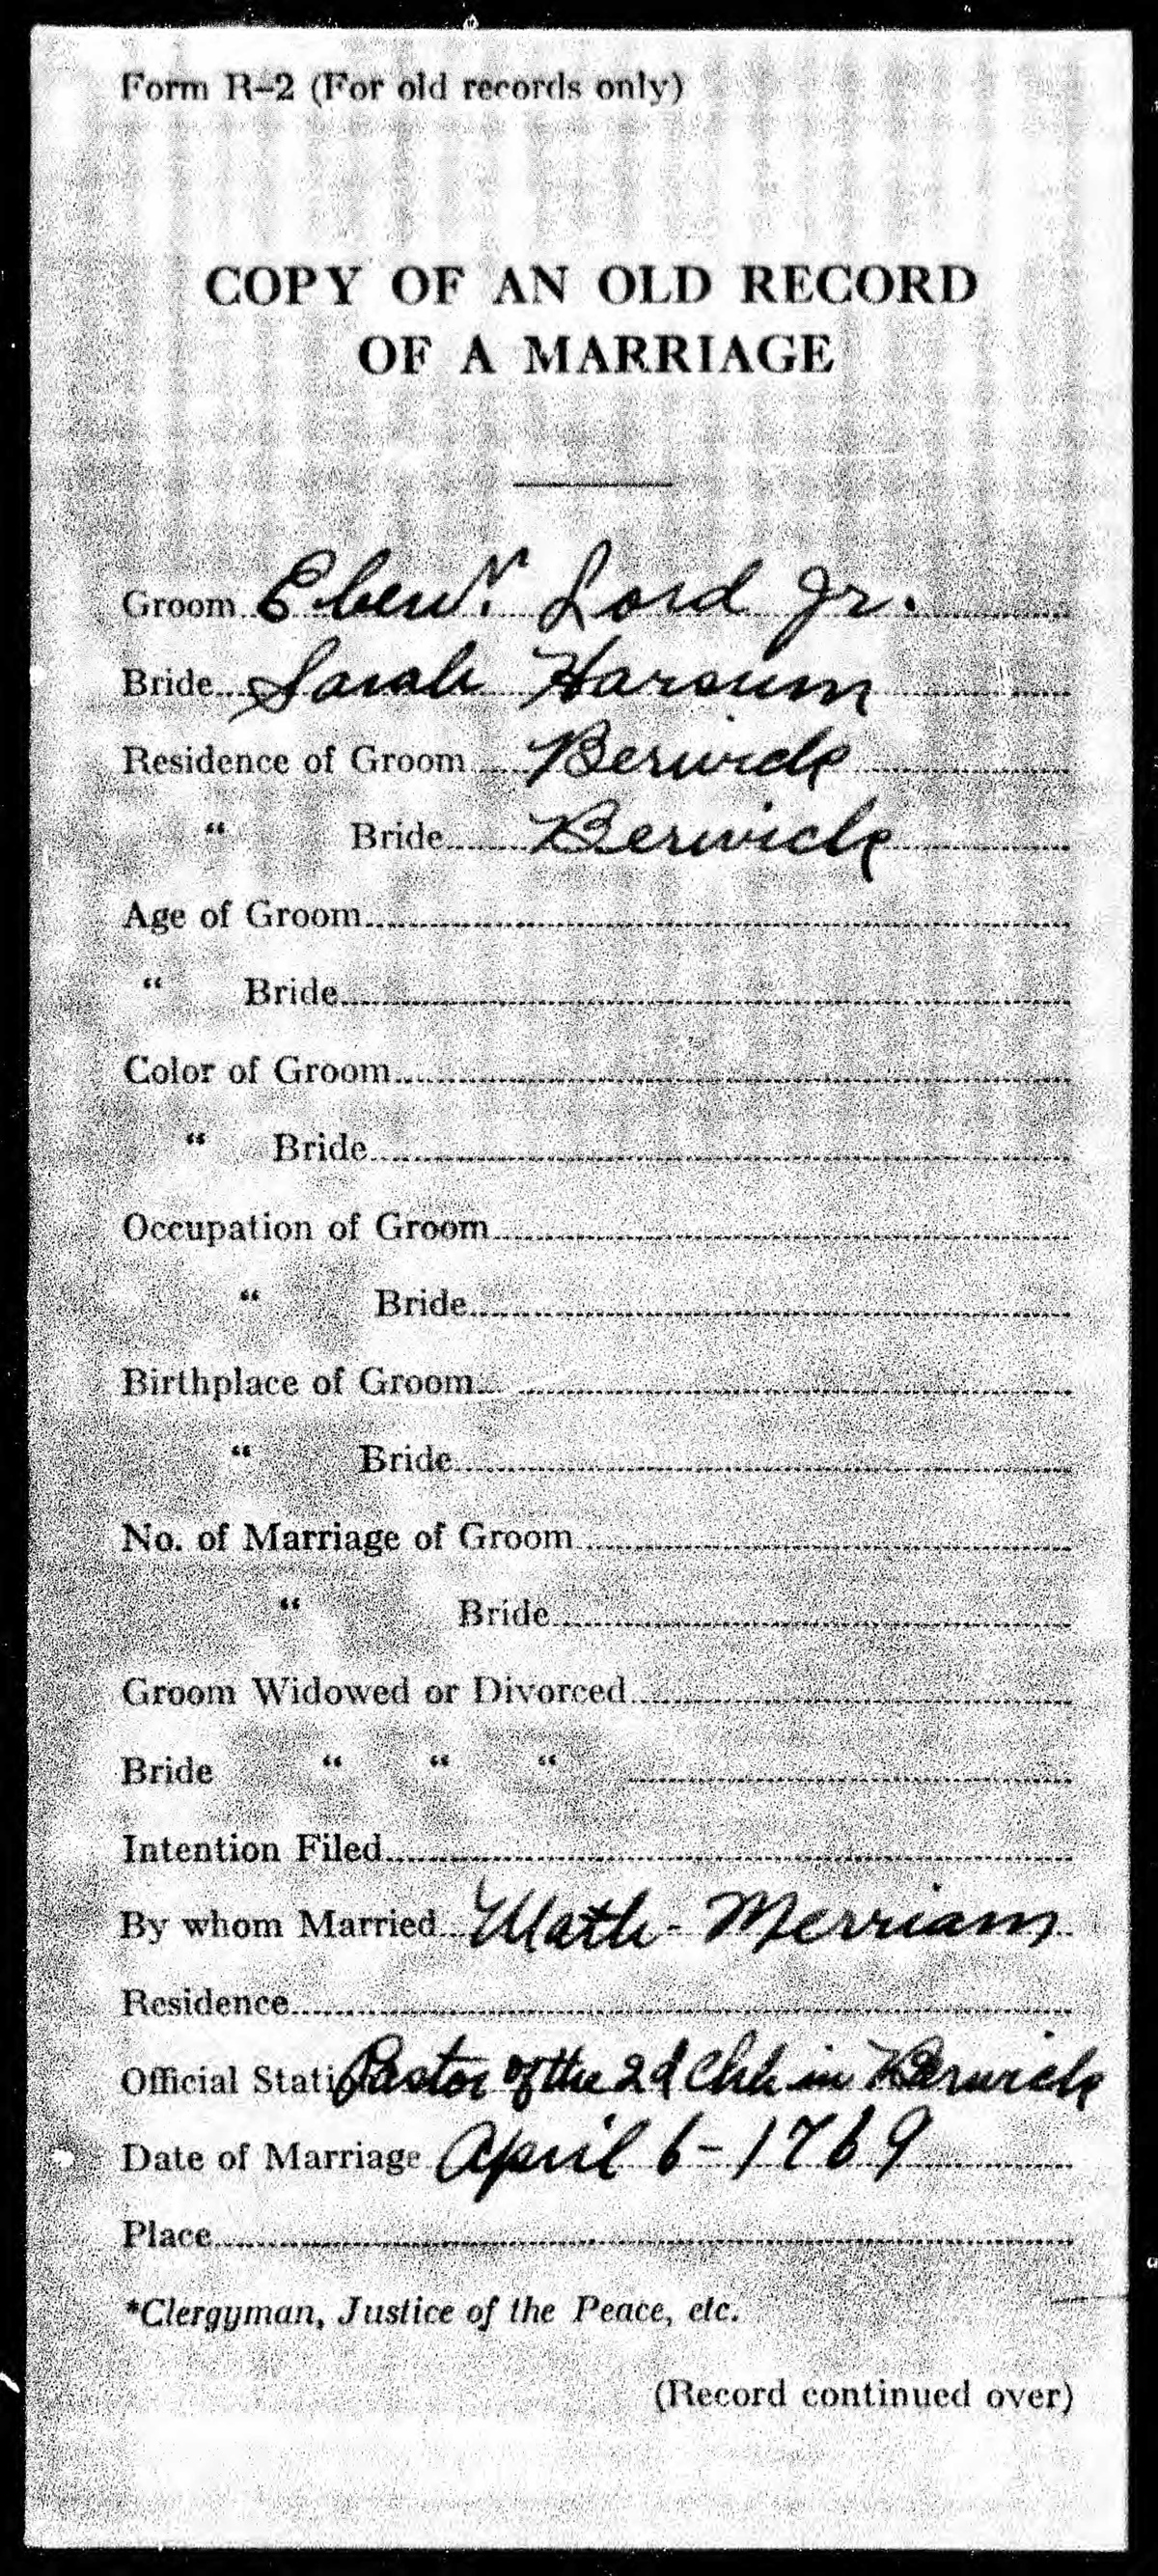 Form R-2 (For old records only)
COPY OF AN OLD RECORD
OF A MARRIAGE
Groom Ebenr. Lord Jr.
Bride Sarah Harsum
Residence of Groom Berwick
" Bride Berwick
Age of Groom
" Bride
Color of Groom
" Bride
Occupation of Groom
" Bride
Birthplace of Groom
" Bride
No. of Marriage of Groom
" Bride
Groom Widowed or Divorced
Bride " " "
Intention Filed
By whom Married Math- Merriam
Residence
Official Stati Pastor of the 2d Chh in Berwick
Date of Marriage April 6-1769
Place
*Clergyman, Justice of the Peace, etc.
(Record continued over)